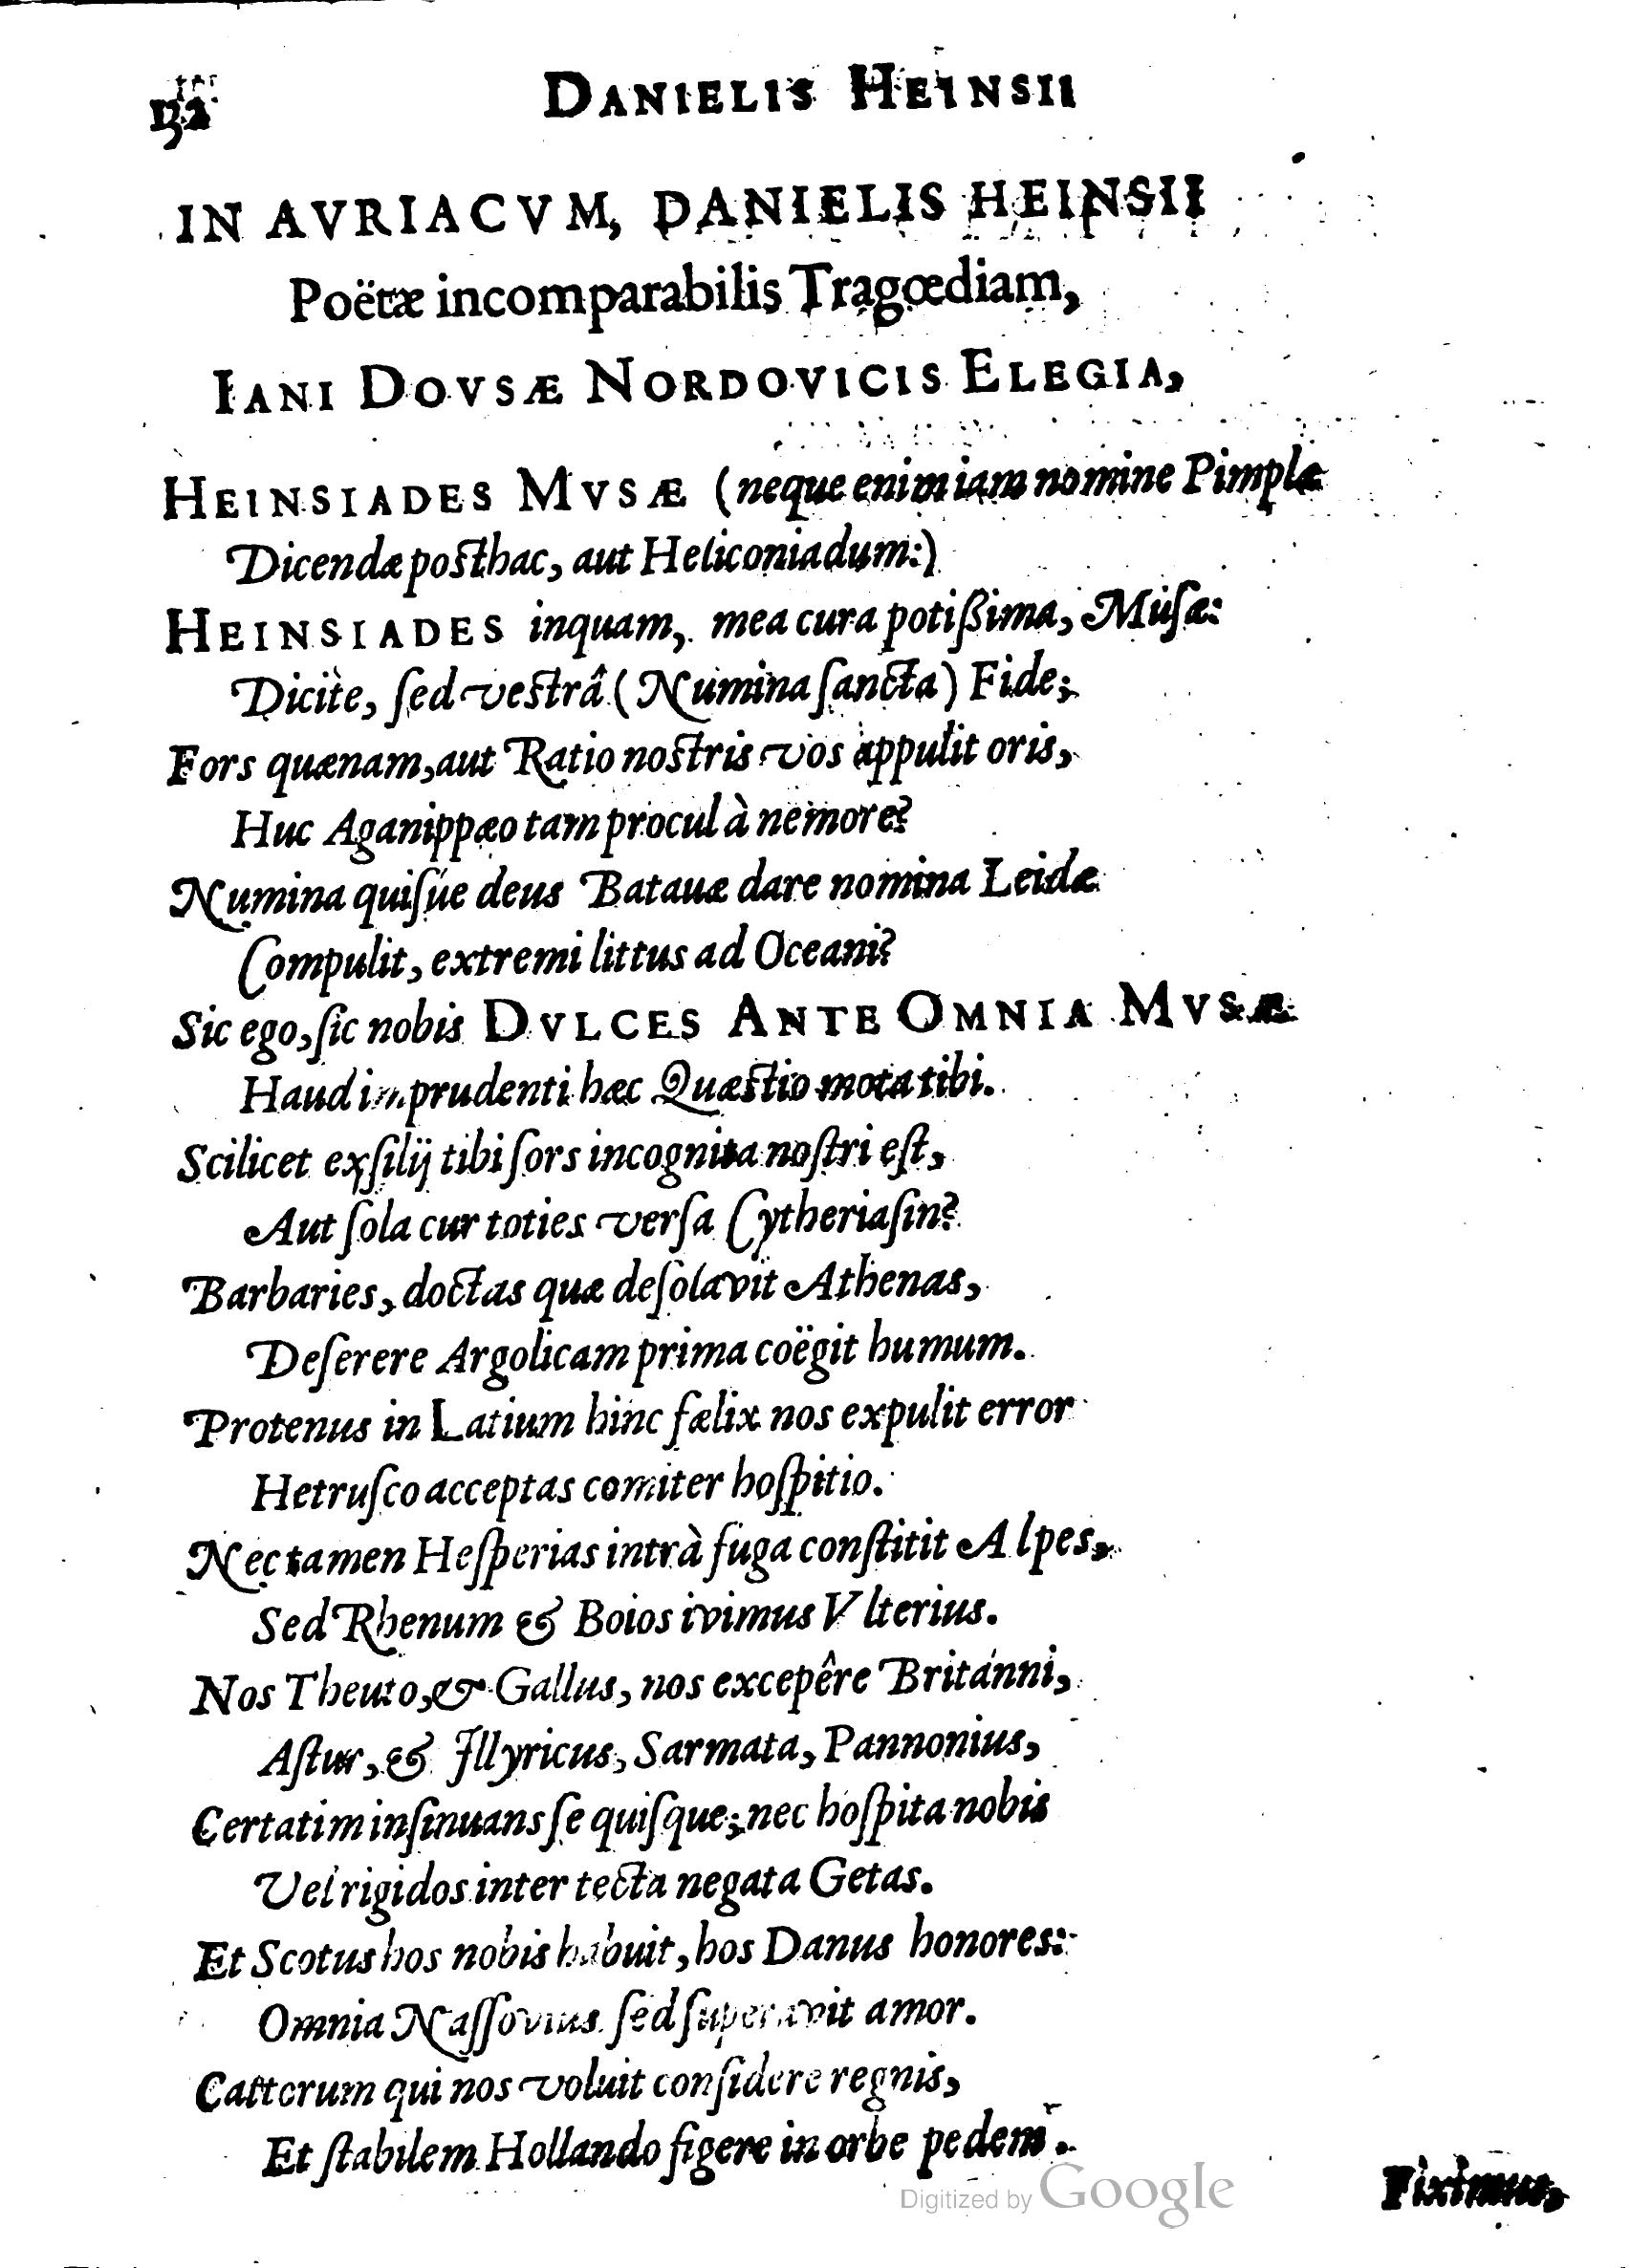 132 DANIELIS HEINSII
IN AVRIACVM, DANIELIS HEINSII
Poëtæ incomparabilis Tragœdiam,
IANI DOVSÆ NORDOVICIS ELEGIA,
HEINSIADES MVSÆ (neque enim iam nomine Pimplæ
Dicendæ posthac, aut Heliconiadum:)
HEINSIADES inquam, mea cura potißima, Musæ:
Dicite, ſed vestrâ (Numina ſancta) Fide;
Fors quænam, aut Ratio nostris vos appulit oris,
Huc Aganippæo tam procul à nemore?
Numina quiſúe deus Batauæ dare nomina Leidæ
Compulit, extremi littus ad Oceani?
Sic ego, ſic nobis DVLCES ANTE OMNIA MVSÆ
Haud imprudenti hæc Quæstio mota tibi.
Scilicet exſilij tibi ſors incognita noſtri eſt,
Aut ſola cur toties verſa Cytheriaſin?
Barbaries, doctas quæ deſolavit Athenas,
Deſerere Argolicam prima coëgit humum.
Protenus in Latium hinc fælix nos expulit error
Hetruſco acceptas comiter hoſpitio.
Nec tamen Heſperias intrà fuga conſtitit Alpes,
Sed Rhenum & Boios ivimus Vlterius.
Nos Theuto, & Gallus, nos excepêre Britanni,
Aſtur, & Illyricus, Sarmata, Pannonius,
Certatim inſinuans ſe quiſque; nec hoſpita nobis
Vel rigidos inter tecta negata Getas.
Et Scotus hos nobis habuit, hos Danus honores:
Omnia Naſſovius ſed ſuperavit amor.
Cattorum qui nos voluit conſidere regnis,
Et ſtabilem Hollando figere in orbe pedem.
Fiximus,
Digitized by Google